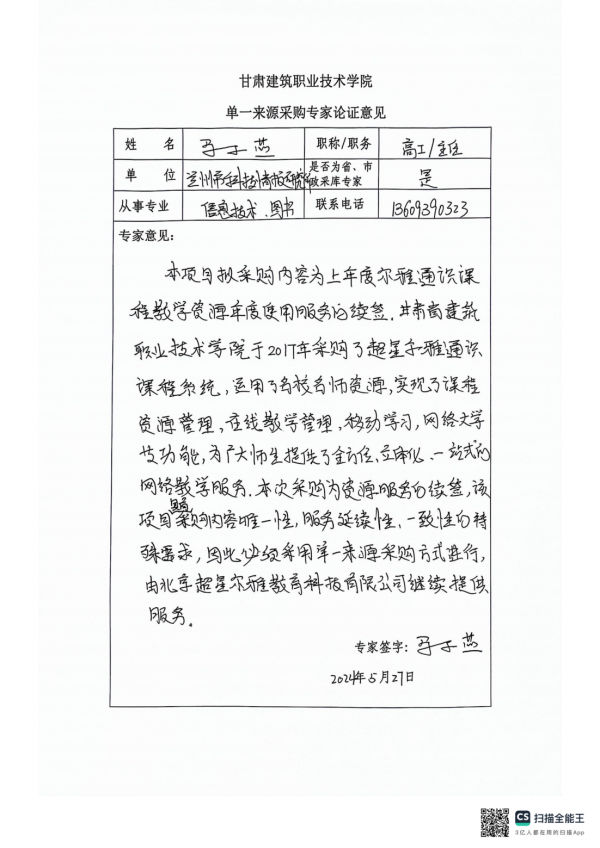 甘肃建筑职业技术学院
单一来源采购专家论证意见
姓 名 马子燕 职称/职务 高工/主任
单 位 兰州市科技情报研究所 是否为省、市政采库专家 是
从事专业 信息技术、图书 联系电话 13609390323
专家意见：
本项目拟采购内容为上年度尔雅通识课
程教学资源年度使用服务的续签。甘肃省建筑
职业技术学院于2017年采购了超星尔雅通识
课程系统，运用了名校名师资源，实现了课程
资源管理，在线教学管理，移动学习，网络文学
等功能，为广大师生提供了全方位、立体化、一站式的
网络教学服务。本次采购为资源服务的续签，该
项目采购内容唯一性，服务延续性、一致性的特
殊需求，因此必须采用单一来源采购方式进行，
由北京超星尔雅教育科技有限公司继续提供
服务。
专家签字：马子燕
2024年5月27日
CS 扫描全能王
3亿人都在用的扫描App